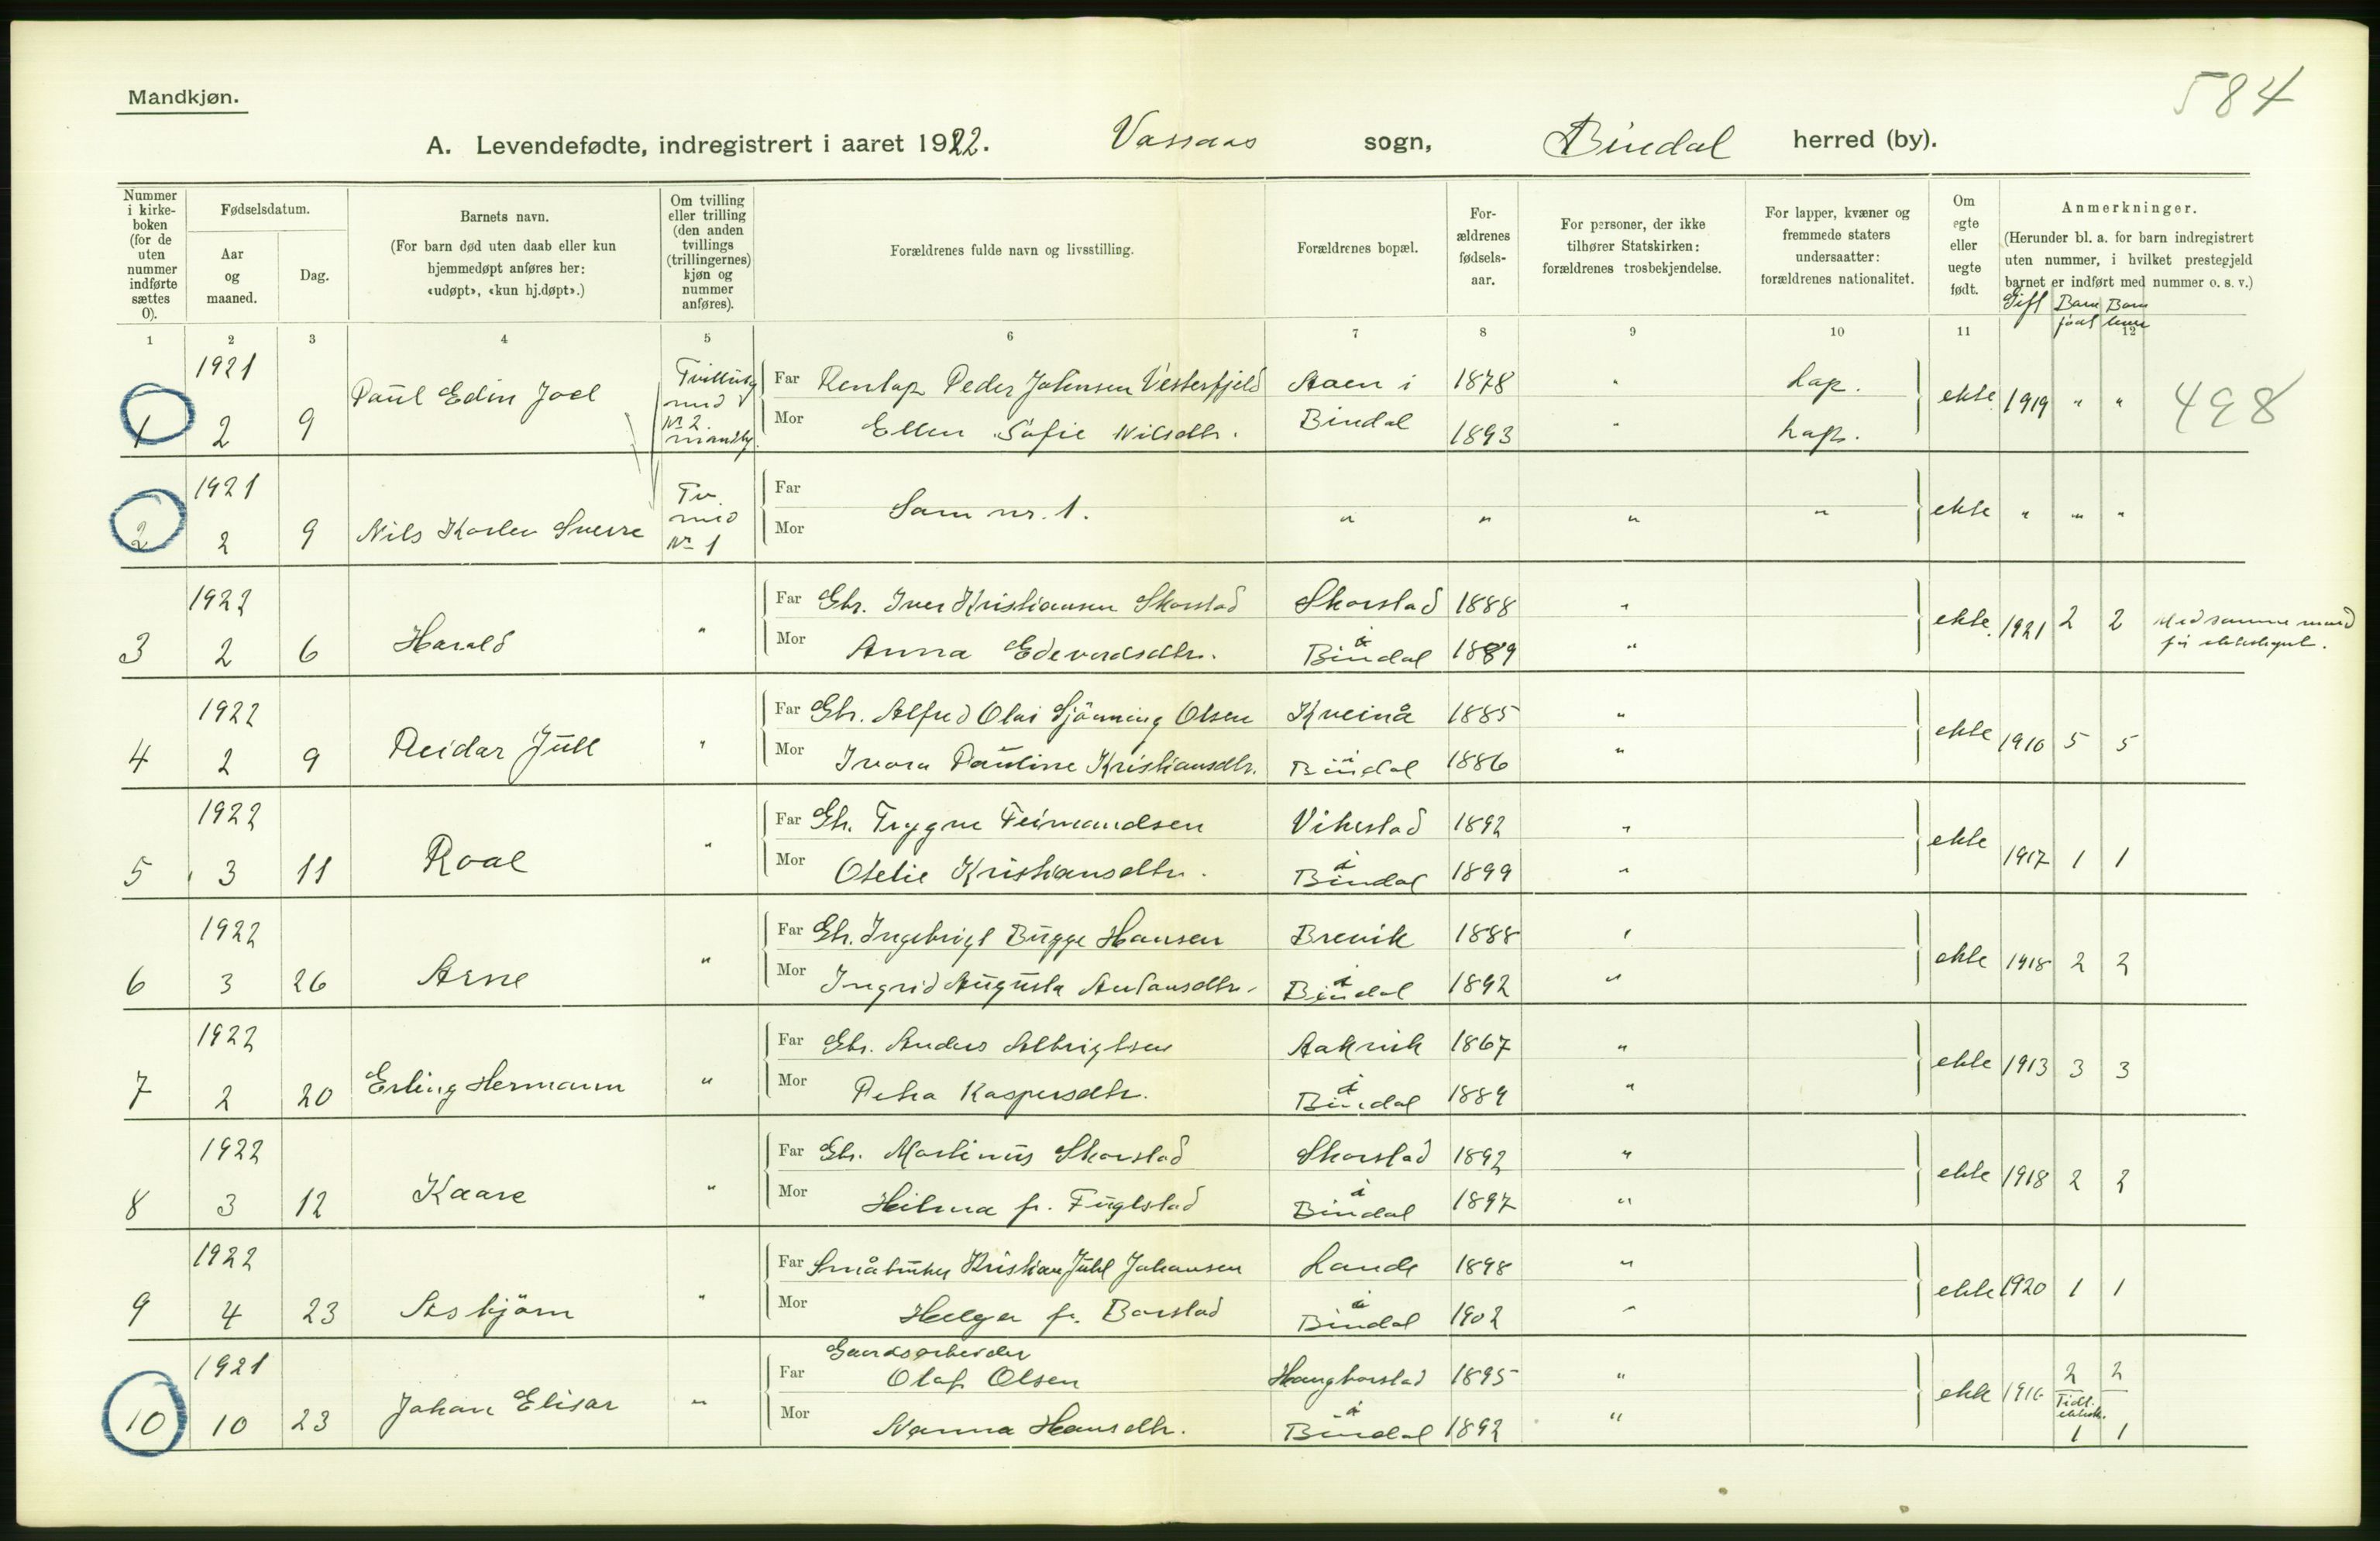 584
Mandkjøn.
A. Levendefødte, indregistrert i aaret 1922. Vassaas sogn, Bindal herred (by).
Nummer i kirkeboken (for de uten nummer indførte sættes 0).
Fødselsdatum.
Aar og maaned.
Dag.
Barnets navn.
(For barn død uten daab eller kun hjemmedøpt anføres her: «udøpt», «kun hj.døpt».)
Om tvilling eller trilling (den anden tvillings (trillingernes) kjøn og nummer anføres).
Forældrenes fulde navn og livsstilling.
Forældrenes bopæl.
Forældrenes fødselsaar.
For personer, der ikke tilhører Statskirken: forældrenes trosbekjendelse.
For lapper, kvæner og fremmede staters undersaatter: forældrenes nationalitet.
Om egte eller uegte født.
Anmerkninger.
(Herunder bl. a. for barn indregistrert uten nummer, i hvilket prestegjeld barnet er indført med nummer o. s. v.)
Gift Barn født Barn lever
1 2 3 4 5 6 7 8 9 10 11 12
1 1921 2 9 Paul Edin Joel Tvilling med Nr 2 mandkj. Far Renlap Peder Johnsen Vesterfjeld Aaen i 1878 " Lap. ekte 1919 " " 498
Mor Ellen Sofie Nilsdtr. Bindal 1893 " Lap.
2 1921 2 9 Nils Karlen Sverre Tv. med Nr 1 Far Mor Som nr. 1. " " " " ekte " " "
3 1922 2 6 Harald " Far Gbr. Iver Kristiansen Skorstad Skorstad 1888 " ekte. 1921 2 2 Med samme mand før ekteskapet.
Mor Anna Edevardsdtr. i Bindal 1889 "
4 1922 2 9 Reidar Jull " Far Gbr. Alfred Olai Sjönning Olsen Kveinå 1885 " ekte 1910 5 5
Mor Ivara Pauline Kristiansdtr. i Bindal 1886 "
5 1922 3 11 Roal " Far Gbr. Trygve Feimandsen Vikestad 1892 " ekte 1917 1 1
Mor Otelie Kristiansdtr. i Bindal 1899 "
6 1922 3 26 Arne " Far Gbr. Ingebrigt Bugge Hansen Brevik 1888 " ekte 1918 2 2
Mor Ingrid Augusta Antonsdtr. i Bindal 1892 "
7 1922 2 20 Erling Hermann " Far Gbr. Anders Albrigtsen Aakvik 1867 " ekte 1913 3 3
Mor Petra Kaspersdtr. i Bindal 1889 "
8 1922 3 12 Kaare " Far Gbr. Martinus Skorstad Skorstad 1892 " ekte 1918 2 2
Mor Hilma f. Fuglstad i Bindal 1897 "
9 1922 4 23 Asbjörn " Far Småbruker Kristian Juhl Johansen Lande 1898 " ekte 1920 1 1
Mor Helga f. Borstad i Bindal 1902 "
10 1921 10 23 Johan Elisar " Far Gaardsarbeider Olaf Olsen Haugborstad 1895 " ekte 1916 2 2
Mor Nanna Hansdtr. i Bindal 1892 " Tidl. ektesk. 1 1